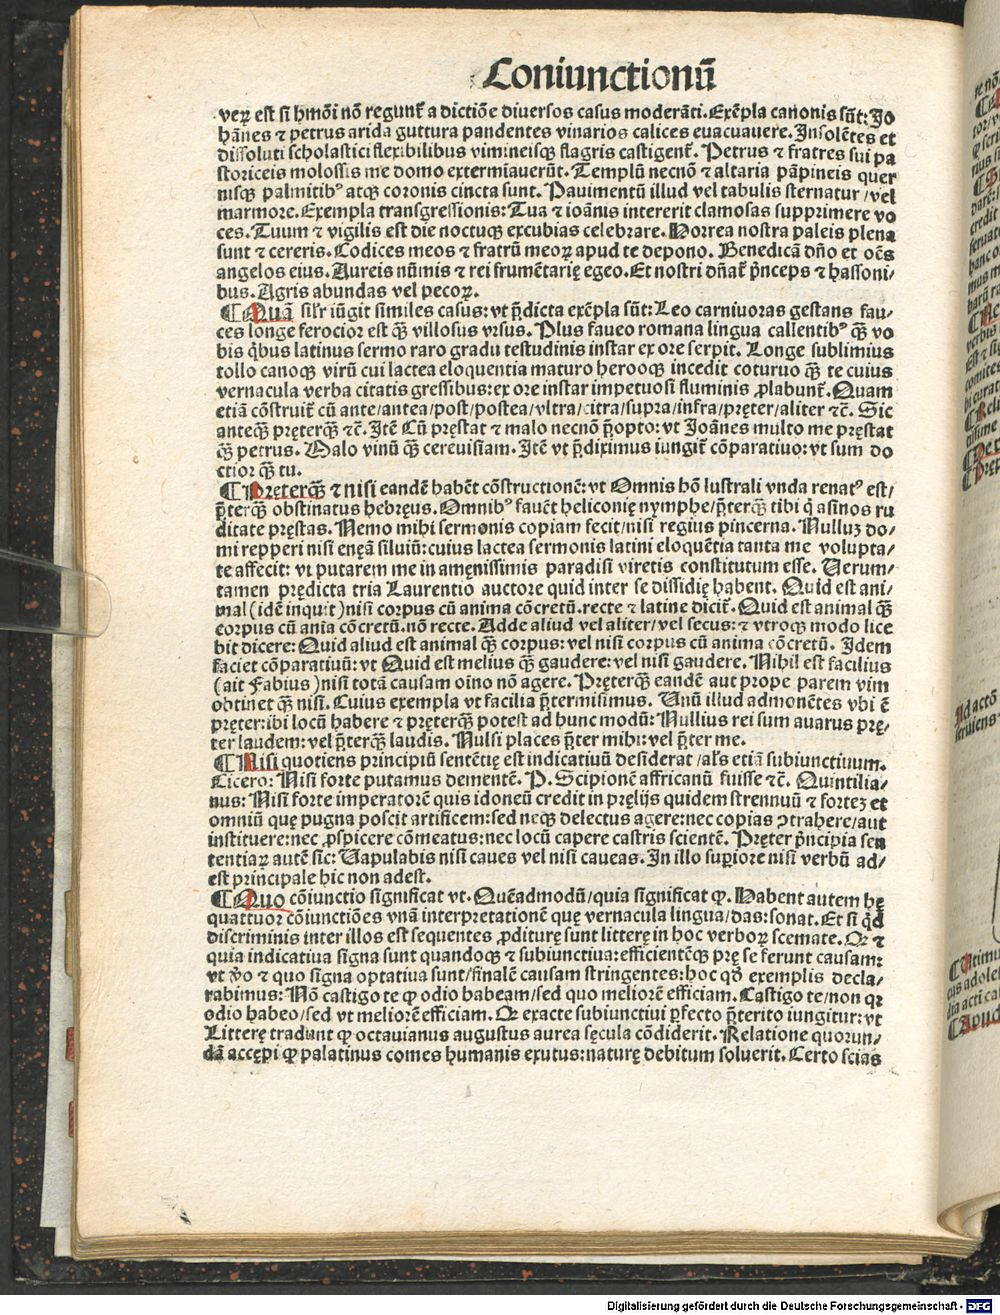 Coniunctionū
veꝝ est si hmōi nō regunt̄ a dictiōe diuersos casus moderāti. Exēpla canonis sūt: Jo
hānes ⁊ petrus arida guttura pandentes vinarios calices euacuauere. Insolētes et
dissoluti scholastici flexibilibus vimineisqꝫ flagris castigent̄. Petrus ⁊ fratres sui pa
storiceis molossis me domo extermiauerūt. Templū necnō ⁊ altaria pāpineis quer
nisqꝫ palmitibꝰ atqꝫ coronis cincta sunt. Pauimentū illud vel tabulis sternatur/vel
marmore. Exempla transgressionis: Tua ⁊ ioānis intererit clamosas supprimere vo
ces. Tuum ⁊ vigilis est die noctuqꝫ excubias celebrare. Horrea nostra paleis plena
sunt ⁊ cereris. Codices meos ⁊ fratrū meoꝝ apud te depono. Benedicā dño et oēs
angelos eius. Aureis nūmis ⁊ rei frumētarię egeo. Et nostri dñat̄ p̄nceps ⁊ hassoni-
bus. Agris abundas vel pecoꝝ.
¶ Quā silr̄ iūgit similes casus: vt p̄dicta exēpla sūt: Leo carniuoras gestans fau-
ces longe ferocior est q̄ꝫ villosus vrsus. Plus faueo romana lingua callentibꝰ q̄ꝫ vo
bis q̇bus latinus sermo raro gradu testudinis instar ex ore serpit. Longe sublimius
tollo canoqꝫ virū cui lactea eloquentia maturo herooqꝫ incedit coturuo q̄ꝫ te cuius
vernacula verba citatis gressibus: ex ore instar impetuosi fluminis ꝓlabunt̄. Quam
etiā cōstruit̄ cū ante/antea/post/postea/vltra/citra/supra/infra/pręter/aliter ⁊c̄. Sic
anteq̄ꝫ pręterq̄ꝫ ⁊c̄. Itē Cū pręstat ⁊ malo necnō p̄opto: vt Joānes multo me pręstat
q̄ꝫ petrus. Malo vinū q̄ꝫ cereuisiam. Itē vt p̄diximus iungit̄ cōparatiuo: vt sum do
ctior q̄ꝫ tu.
¶ Pręterq̄ꝫ ⁊ nisi eandē habēt cōstructionē: vt Omnis hō lustrali vnda renatꝰ est/
p̄terq̄ꝫ obstinatus hebręus. Omnibꝰ fauēt heliconię nymphe/p̄terq̄ꝫ tibi q̇ asinos ru
ditate pręstas. Nemo mihi sermonis copiam fecit/nisi regius pincerna. Nulluꝫ do-
mi repperi nisi enęā siluiū: cuius lactea sermonis latini eloquētia tanta me volupta-
te affecit: vt putarem me in amęnissimis paradisi viretis constitutum esse. Verum-
tamen prędicta tria Laurentio auctore quid inter se dissidię habent. Quid est ani-
mal (idē inquit) nisi corpus cū anima cōcretū. recte ⁊ latine dicit̄. Quid est animal q̄ꝫ
corpus cū aīa cōcretū. nō recte. Adde aliud vel aliter/vel secus: ⁊ vtroqꝫ modo lice
bit dicere: Quid aliud est animal q̄ꝫ corpus: vel nisi corpus cū anima cōcretū. Idem
faciet cōparatiuū: vt Quid est melius q̄ꝫ gaudere: vel nisi gaudere. Nihil est facilius
(ait Fabius) nisi totā causam oīno nō agere. Pręterq̄ꝫ eandē aut prope parem vim
obtinet q̄ꝫ nisi. Cuius exempla vt facilia p̄termisimus. Unū illud admonētes vbi ē
pręter: ibi locū habere ⁊ pręterq̄ꝫ potest ad hunc modū: Nullius rei sum auarus prę-
ter laudem: vel p̄terq̄ꝫ laudis. Nulsi places p̄ter mihi: vel p̄ter me.
¶ Nisi quotiens principiū sentētię est indicatiuū desiderat/al̄s etiā subiunctiuum.
Cicero: Nisi forte putamus dementē. P. Scipionē affricanū fuisse ⁊c̄. Quintilia-
nus: Nisi forte imperatorē quis idoneū credit in pręlijs quidem strennuū ⁊ forteꝫ et
omniū quę pugna poscit artificem: sed neqꝫ delectus agere: nec copias ꝯtrahere/aut
instituere: nec ꝓspicere cōmeatus: nec locū capere castris scientē. Pręter p̄ncipia sen
tentiaꝝ autē sic: Vapulabis nisi caues vel nisi caueas. In illo suꝑiore nisi verbū ad-
est principale hic non adest.
¶ Quo cōiunctio significat vt. Quēadmodū/quia significat ꝙ. Habent autem hę
quattuor cōiunctiōes vnā interpretationē quę vernacula lingua/das: sonat. Et si q̇d
discriminis inter illos est sequentes ꝓditurę sunt litterę in hoc verboꝝ scemate. Qꝛ ⁊
quia indicatiua signa sunt quandoqꝫ ⁊ subiunctiua: efficientēqꝫ prę se ferunt causam:
vt v̄o ⁊ quo signa optatiua sunt/finalē causam stringentes: hoc qd̄ exemplis decla-
rabimus: Nō castigo te ꝙ odio habeam/sed quo meliorē efficiam. Castigo te/non qꝛ
odio habeo/sed vt meliorē efficiam. Qꝛ exacte subiunctiui ꝑfecto p̄terito iungitur: vt
Litterę tradunt ꝙ octauianus augustus aurea sęcula cōdiderit. Relatione quorun-
dā accępi ꝙ palatinus comes hęmanis exutus: naturę debitum soluerit. Certo scias
Digitalisierung gefördert durch die Deutsche Forschungsgemeinschaft - DFG